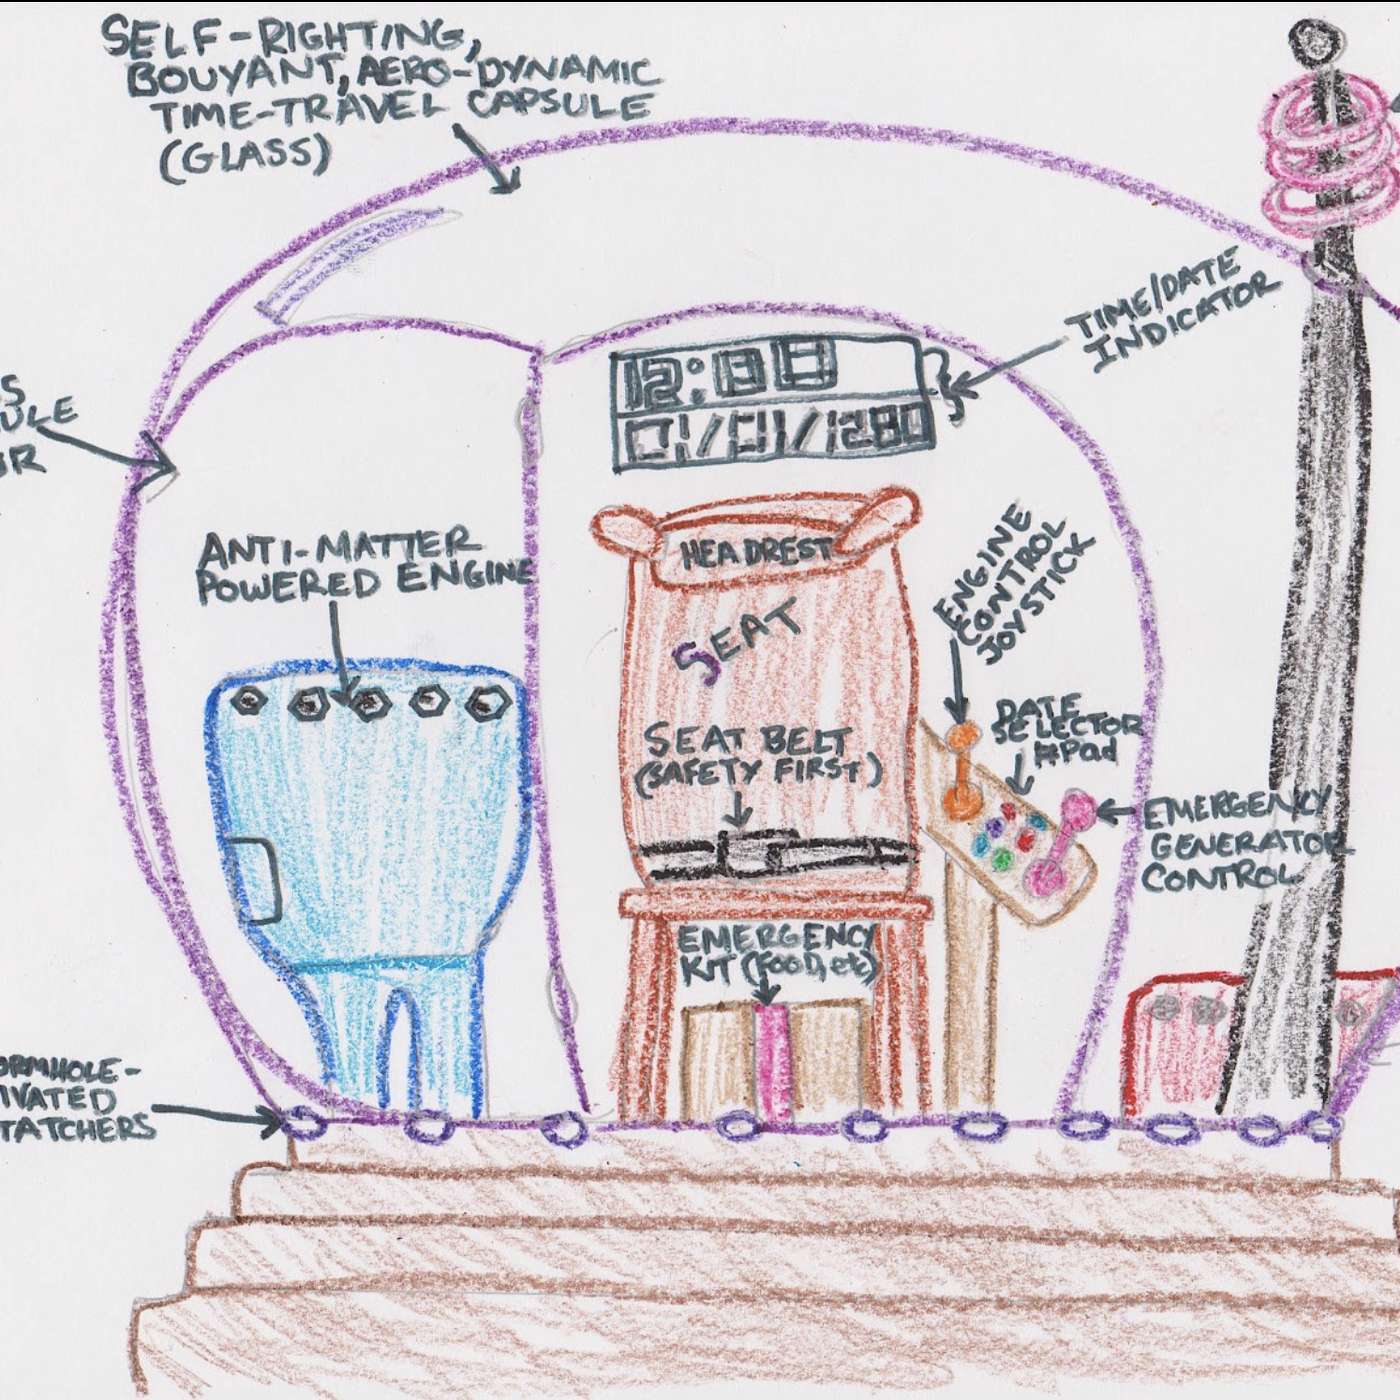 SELF-RIGHTING,
BOUYANT, AERO-DYNAMIC
TIME-TRAVEL CAPSULE
(GLASS)
TIME/DATE
INDICATOR
12:88
01/01/1280
ANTI-MATTER
POWERED ENGINE
HEADREST
SEAT
SEAT BELT
(SAFETY FIRST)
ENGINE
CONTROL
JOYSTICK
DATE
SELECTOR
#Pad
EMERGENCY
GENERATOR
CONTROL
EMERGENCY
KIT (FOOD, etc)
ORMHOLE-
IVATED
TATCHERS